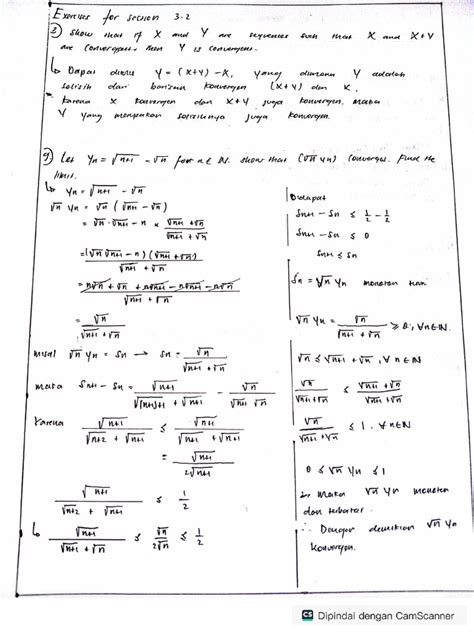 Exercises for section 3.2
3) Show that if X and Y are sequences such that X and X+Y
are convergent, then Y is convergent.
↳ Dapat ditulis Y = (X+Y) - X, yang dimana Y adalah
selisih dari barisan konvergen (X+Y) dan X.
karena X konvergen dan X+Y juga konvergen, maka
Y yang merupakan selisihnya juga konvergen.
9) Let Yn = √n+1 - √n for n ∈ N. show that (√n yn) converges. Find the
limit.
↳ Yn = √n+1 - √n
√n Yn = √n (√n+1 - √n)
= √n · √n+1 - n × √n+1 + √n / √n+1 + √n
= (√n √n+1 - n)(√n+1 + √n) / √n+1 + √n
= n√n + √n + n√n+1 - n√n+1 - n√n / √n+1 + √n
= √n / √n+1 + √n
misal √n Yn = Sn → Sn = √n / √n+1 + √n
maka Sn+1 - Sn = √n+1 / √(n+1)+1 + √n+1 - √n / √n+1 √n
karena √n+1 / √n+2 + √n+1 ≤ √n+1 / √n+1 + √n+1
= √n+1 / 2√n+1
√n+1 / √n+2 + √n+1 ≤ 1/2
↳ √n+1 / √n+1 + √n ≤ √n / 2√n ≤ 1/2
Didapat
Sn+1 - Sn ≤ 1/2 - 1/2
Sn+1 - Sn ≤ 0
Sn+1 ≤ Sn
Sn = √n Yn monoton
√n Yn = √n / √n+1 + √n ≥ 0, ∀n∈N
√n ≤ √n+1 + √n, ∀ n∈N
√n / √n+1 + √n ≤ √n+1 + √n / √n+1 + √n
√n / √n+1 + √n ≤ 1, ∀n∈N
0 ≤ √n Yn ≤ 1
maka √n Yn monoton
dan terbatas
∴ Dengan demikian √n Yn
konvergen.
CS Dipindai dengan CamScanner